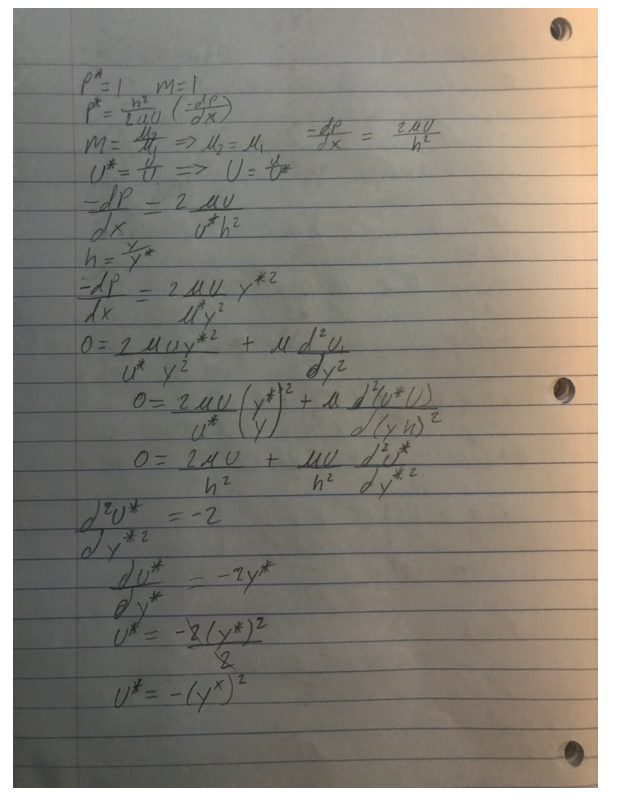 P* = 1    m = 1
P* = h²/2μU (-dp/dx)
m = μ₂/μ₁ => μ₂ = μ₁    -dp/dx = 2μU/h²
U* = u/U => U = u/U*
-dP/dx = 2 μu/u*h²
h = y/y*
-dp/dx = 2 μu/μ*y² y*²
0 = 2 μuy*²/u* y² + μ d²u₁/dy²
0 = 2μu/u* (y*/y)² + μ d²(u*U)/d(yh)²
0 = 2μU/h² + μU/h² d²u*/dy*²
d²U*/dy*² = -2
du*/dy* = -2y*
u* = -2(y*)²/2
U* = -(yˣ)²